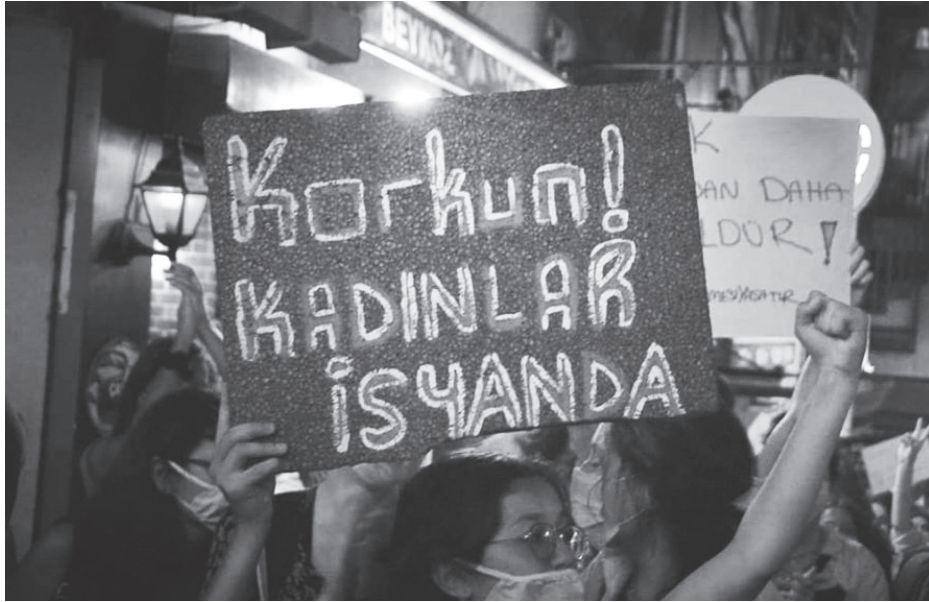 BEYKOZ
Korkun!
KADINLAR
İSYANDA
K
DAN DAHA
LDÜR!